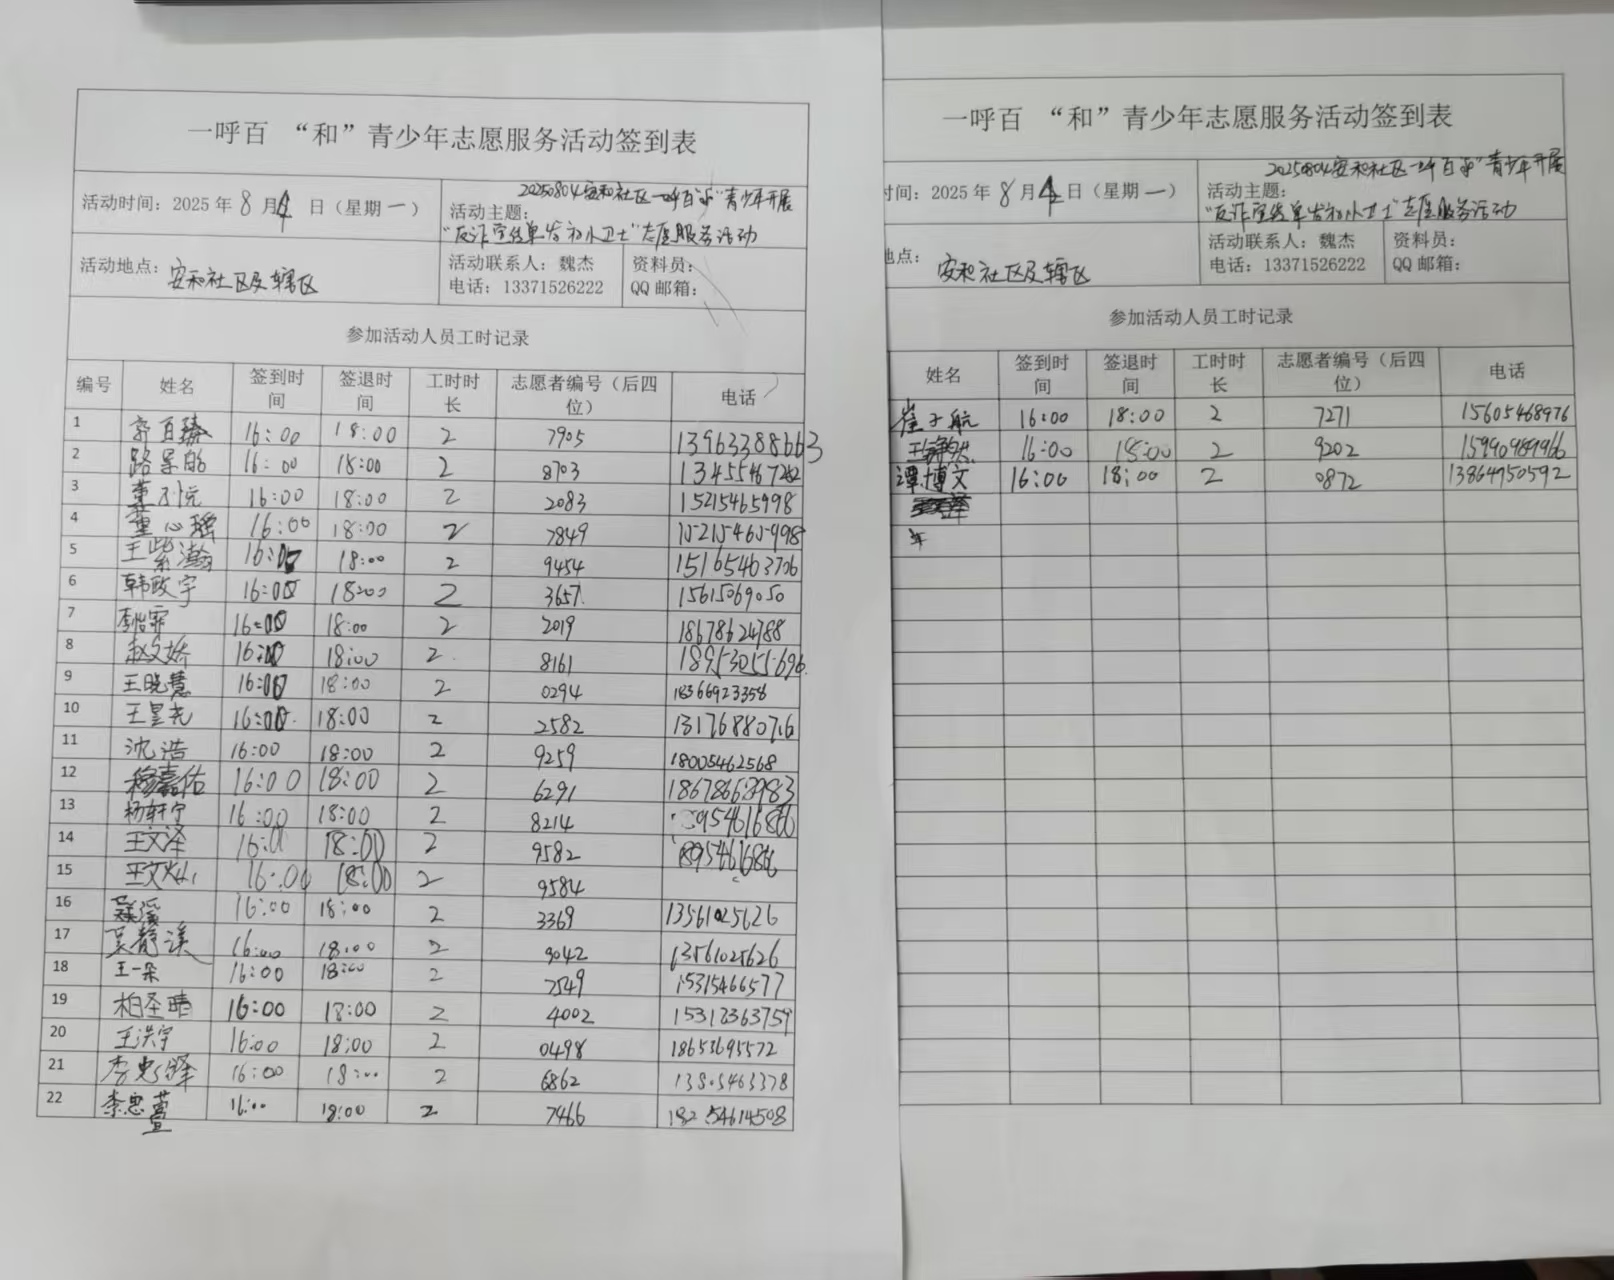 一呼百 “和”青少年志愿服务活动签到表
活动时间：2025年8月4日（星期一）
20250804安和社区一呼百“和”青少年开展
活动主题：
“反诈宣传单发初小卫士”志愿服务活动
活动地点：安和社区及辖区
活动联系人：魏杰 资料员：
电话：13371526222 QQ邮箱：
参加活动人员工时记录
编号 姓名 签到时间 签退时间 工时时长 志愿者编号（后四位） 电话
1 郭百臻 16:00 18:00 2 7905 13963388663
2 路昊的 16:00 18:00 2 8703 13455467282
3 董子悦 16:00 18:00 2 2083 15215465998
4 董心瑶 16:00 18:00 2 7849 15215465998
5 王紫瀚 16:00 18:00 2 9454 15165463706
6 韩政宇 16:00 18:00 2 3657 15615069050
7 李怡霏 16:00 18:00 2 2019 18678624788
8 赵文娇 16:00 18:00 2 8161 18953055696
9 王晓慧 16:00 18:00 2 0294 18366923358
10 王昱尧 16:00 18:00 2 2582 13176880716
11 沈浩 16:00 18:00 2 9259 18005462568
12 穆嘉佑 16:00 18:00 2 6291 18678668983
13 杨轩宁 16:00 18:00 2 8214
14 王文泽 16:00 18:00 2 9582
15 王文 16:00 18:00 2 9584
16 溪 16:00 18:00 2 3369 13561025626
17 吴静溪 16:00 18:00 2 9042 13561025626
18 王一朵 16:00 18:00 2 7549 15315466577
19 柏圣晴 16:00 18:00 2 4002 15312363759
20 王洪宇 16:00 18:00 2 0498 18653695572
21 李忠泽 16:00 18:00 2 6862 13805463378
22 李忠萱 16:00 18:00 2 7466 18254614508
一呼百 “和”青少年志愿服务活动签到表
时间：2025年8月4日（星期一）
20250804安和社区一呼百“和”青少年开展
活动主题：
“反诈宣传单发初小卫士”志愿服务活动
地点：安和社区及辖区
活动联系人：魏杰 资料员：
电话：13371526222 QQ邮箱：
参加活动人员工时记录
姓名 签到时间 签退时间 工时时长 志愿者编号（后四位） 电话
崔子航 16:00 18:00 2 7271 15605468976
王 16:00 18:00 2 9202 15990989966
谭博文 16:00 18:00 2 0872 13864750592